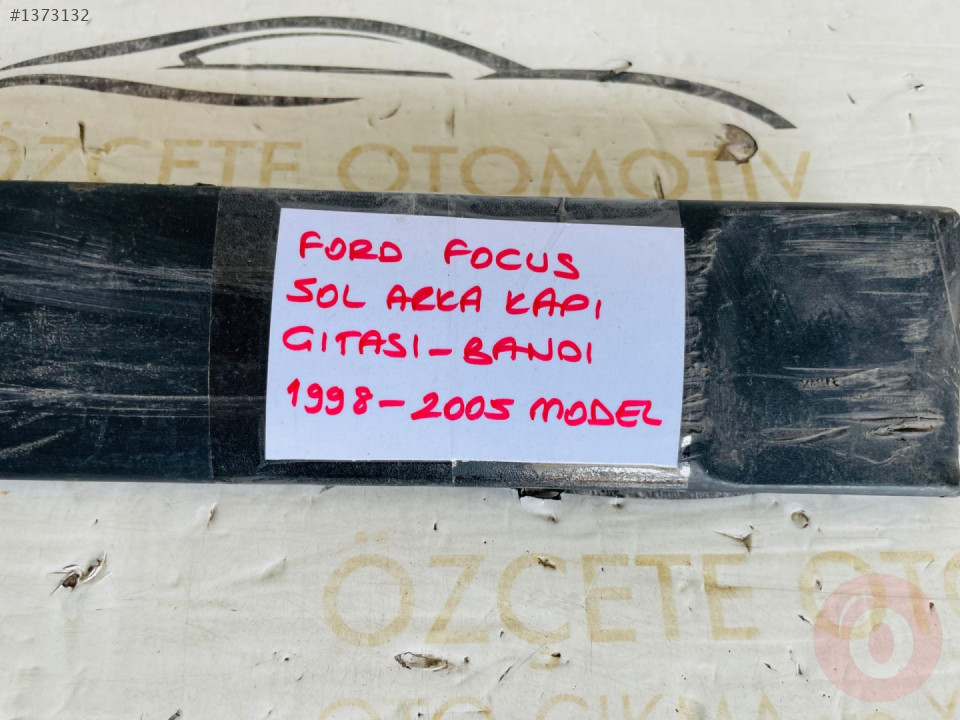 #1373132
ÖZÇETE OTOMOTİV
FORD FOCUS
SOL ARKA KAPI
GITASI-BANDI
1998-2005 MODEL
ÖZÇETE OTO
OTO ÇIKMA